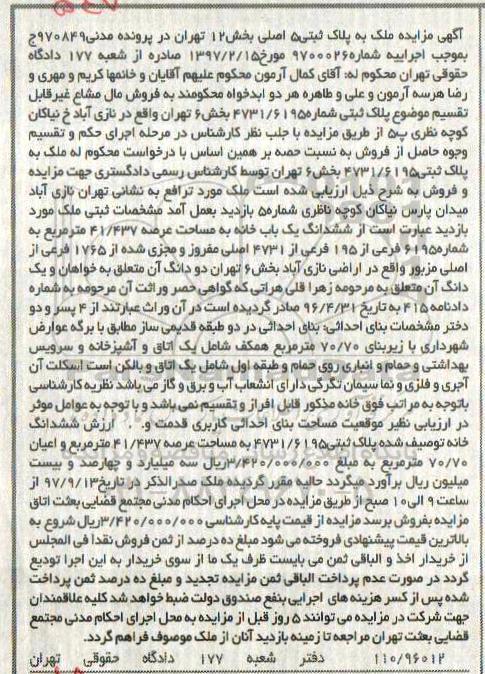 آگهی مزایده ملک به پلاک ثبتی۵ اصلی بخش۱۲ تهران در پرونده مدنی۹۷۰۸۴۹ج
بموجب اجراییه شماره۹۷۰۰۰۲۶ مورخ۱۳۹۷/۲/۱۵ صادره از شعبه ۱۷۷ دادگاه
حقوقی تهران محکوم له: آقای کمال آزمون محکوم علیهم آقایان و خانمها کریم و مهری و
رضا هرسه آزمون و علی و طاهره هر دو ابدخواه محکومند به فروش مال مشاع غیرقابل
تقسیم موضوع پلاک ثبتی شماره۴۷۳۱/۶۱۹۵ بخش۶ تهران واقع در نازی آباد خ نیاکان
کوچه نظری پ۵ از طریق مزایده با جلب نظر کارشناس در مرحله اجرای حکم و تقسیم
وجوه حاصل از فروش به نسبت حصه بر همین اساس با درخواست محکوم له ملک به
پلاک ثبتی۴۷۳۱/۶۱۹۵ بخش۶ تهران توسط کارشناس رسمی دادگستری جهت مزایده
و فروش به شرح ذیل ارزیابی شده است ملک مورد ترافع به نشانی تهران نازی آباد
میدان پارس نیاکان کوچه ناظری شماره۵ بازدید بعمل آمد مشخصات ثبتی ملک مورد
بازدید عبارت است از ششدانگ یک باب خانه به مساحت عرصه ۴۱/۴۳۷ مترمربع به
شماره۶۱۹۵ فرعی از ۱۹۵ فرعی از ۴۷۳۱ اصلی مفروز و مجزی شده از ۱۷۶۵ فرعی از
اصلی مزبور واقع در اراضی نازی آباد بخش۶ تهران دو دانگ آن متعلق به خواهان و یک
دانگ آن متعلق به مرحومه زهرا قلی هراتی که گواهی حصر وراثت آن مرحومه به شماره
دادنامه۴۱۵ به تاریخ ۹۶/۴/۳۱ صادر گردیده است در آن وراث عبارتند از ۴ پسر و دو
دختر مشخصات بنای احداثی: بنای احداثی در دو طبقه قدیمی ساز مطابق با برگه عوارض
شهرداری با زیربنای ۷۰/۷۰ مترمربع همکف شامل یک اتاق و آشپزخانه و سرویس
بهداشتی و حمام و انباری روی حمام و طبقه اول شامل یک اتاق و بالکن است اسکلت آن
آجری و فلزی و نما سیمان تگرگی دارای انشعاب آب و برق و گاز می باشد نظریه کارشناسی
باتوجه به مراتب فوق خانه مذکور قابل افراز و تقسیم نمی باشد و با توجه به عوامل موثر
در ارزیابی نظیر موقعیت مساحت بنای احداثی کاربری قدمت و. . . ارزش ششدانگ
خانه توصیف شده پلاک ثبتی۴۷۳۱/۶۱۹۵ به مساحت عرصه ۴۱/۴۳۷ مترمربع و اعیان
۷۰/۷۰ مترمربع به مبلغ ۳/۴۲۰/۰۰۰/۰۰۰ریال سه میلیارد و چهارصد و بیست
میلیون ریال برآورد میگردد حالیه مقرر گردیده ملک صدرالذکر در تاریخ۹۷/۹/۱۳ از
ساعت ۹ الی۱۰ صبح از طریق مزایده در محل اجرای احکام مدنی مجتمع قضایی بعثت اتاق
مزایده بفروش برسد مزایده از قیمت پایه کارشناسی ۳/۴۲۰/۰۰۰/۰۰۰ریال شروع به
بالاترین قیمت پیشنهادی فروخته می شود مبلغ ده درصد از ثمن فروش نقدا فی المجلس
از خریدار اخذ و الباقی ثمن می بایست ظرف یک ما از سوی خریدار به این اجرا تودیع
گردد در صورت عدم پرداخت الباقی ثمن مزایده تجدید و مبلغ ده درصد ثمن پرداخت
شده پس از کسر هزینه های اجرایی بنفع صندوق دولت ضبط خواهد شد کلیه علاقمندان
جهت شرکت در مزایده می توانند ۵ روز قبل از مزایده به محل اجرای احکام مدنی مجتمع
قضایی بعثت تهران مراجعه تا زمینه بازدید آنان از ملک موصوف فراهم گردد.
۱۱۰/۹۶۰۱۲ دفتر شعبه ۱۷۷ دادگاه حقوقی تهران